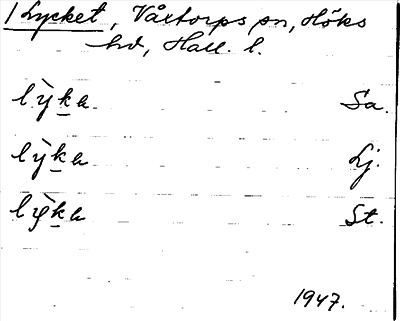 1 Lycket, Våxtorps sn, Höks
hd, Hall. l.
lỳka Sa.
lỳka Lj.
lỳka St.
1947.